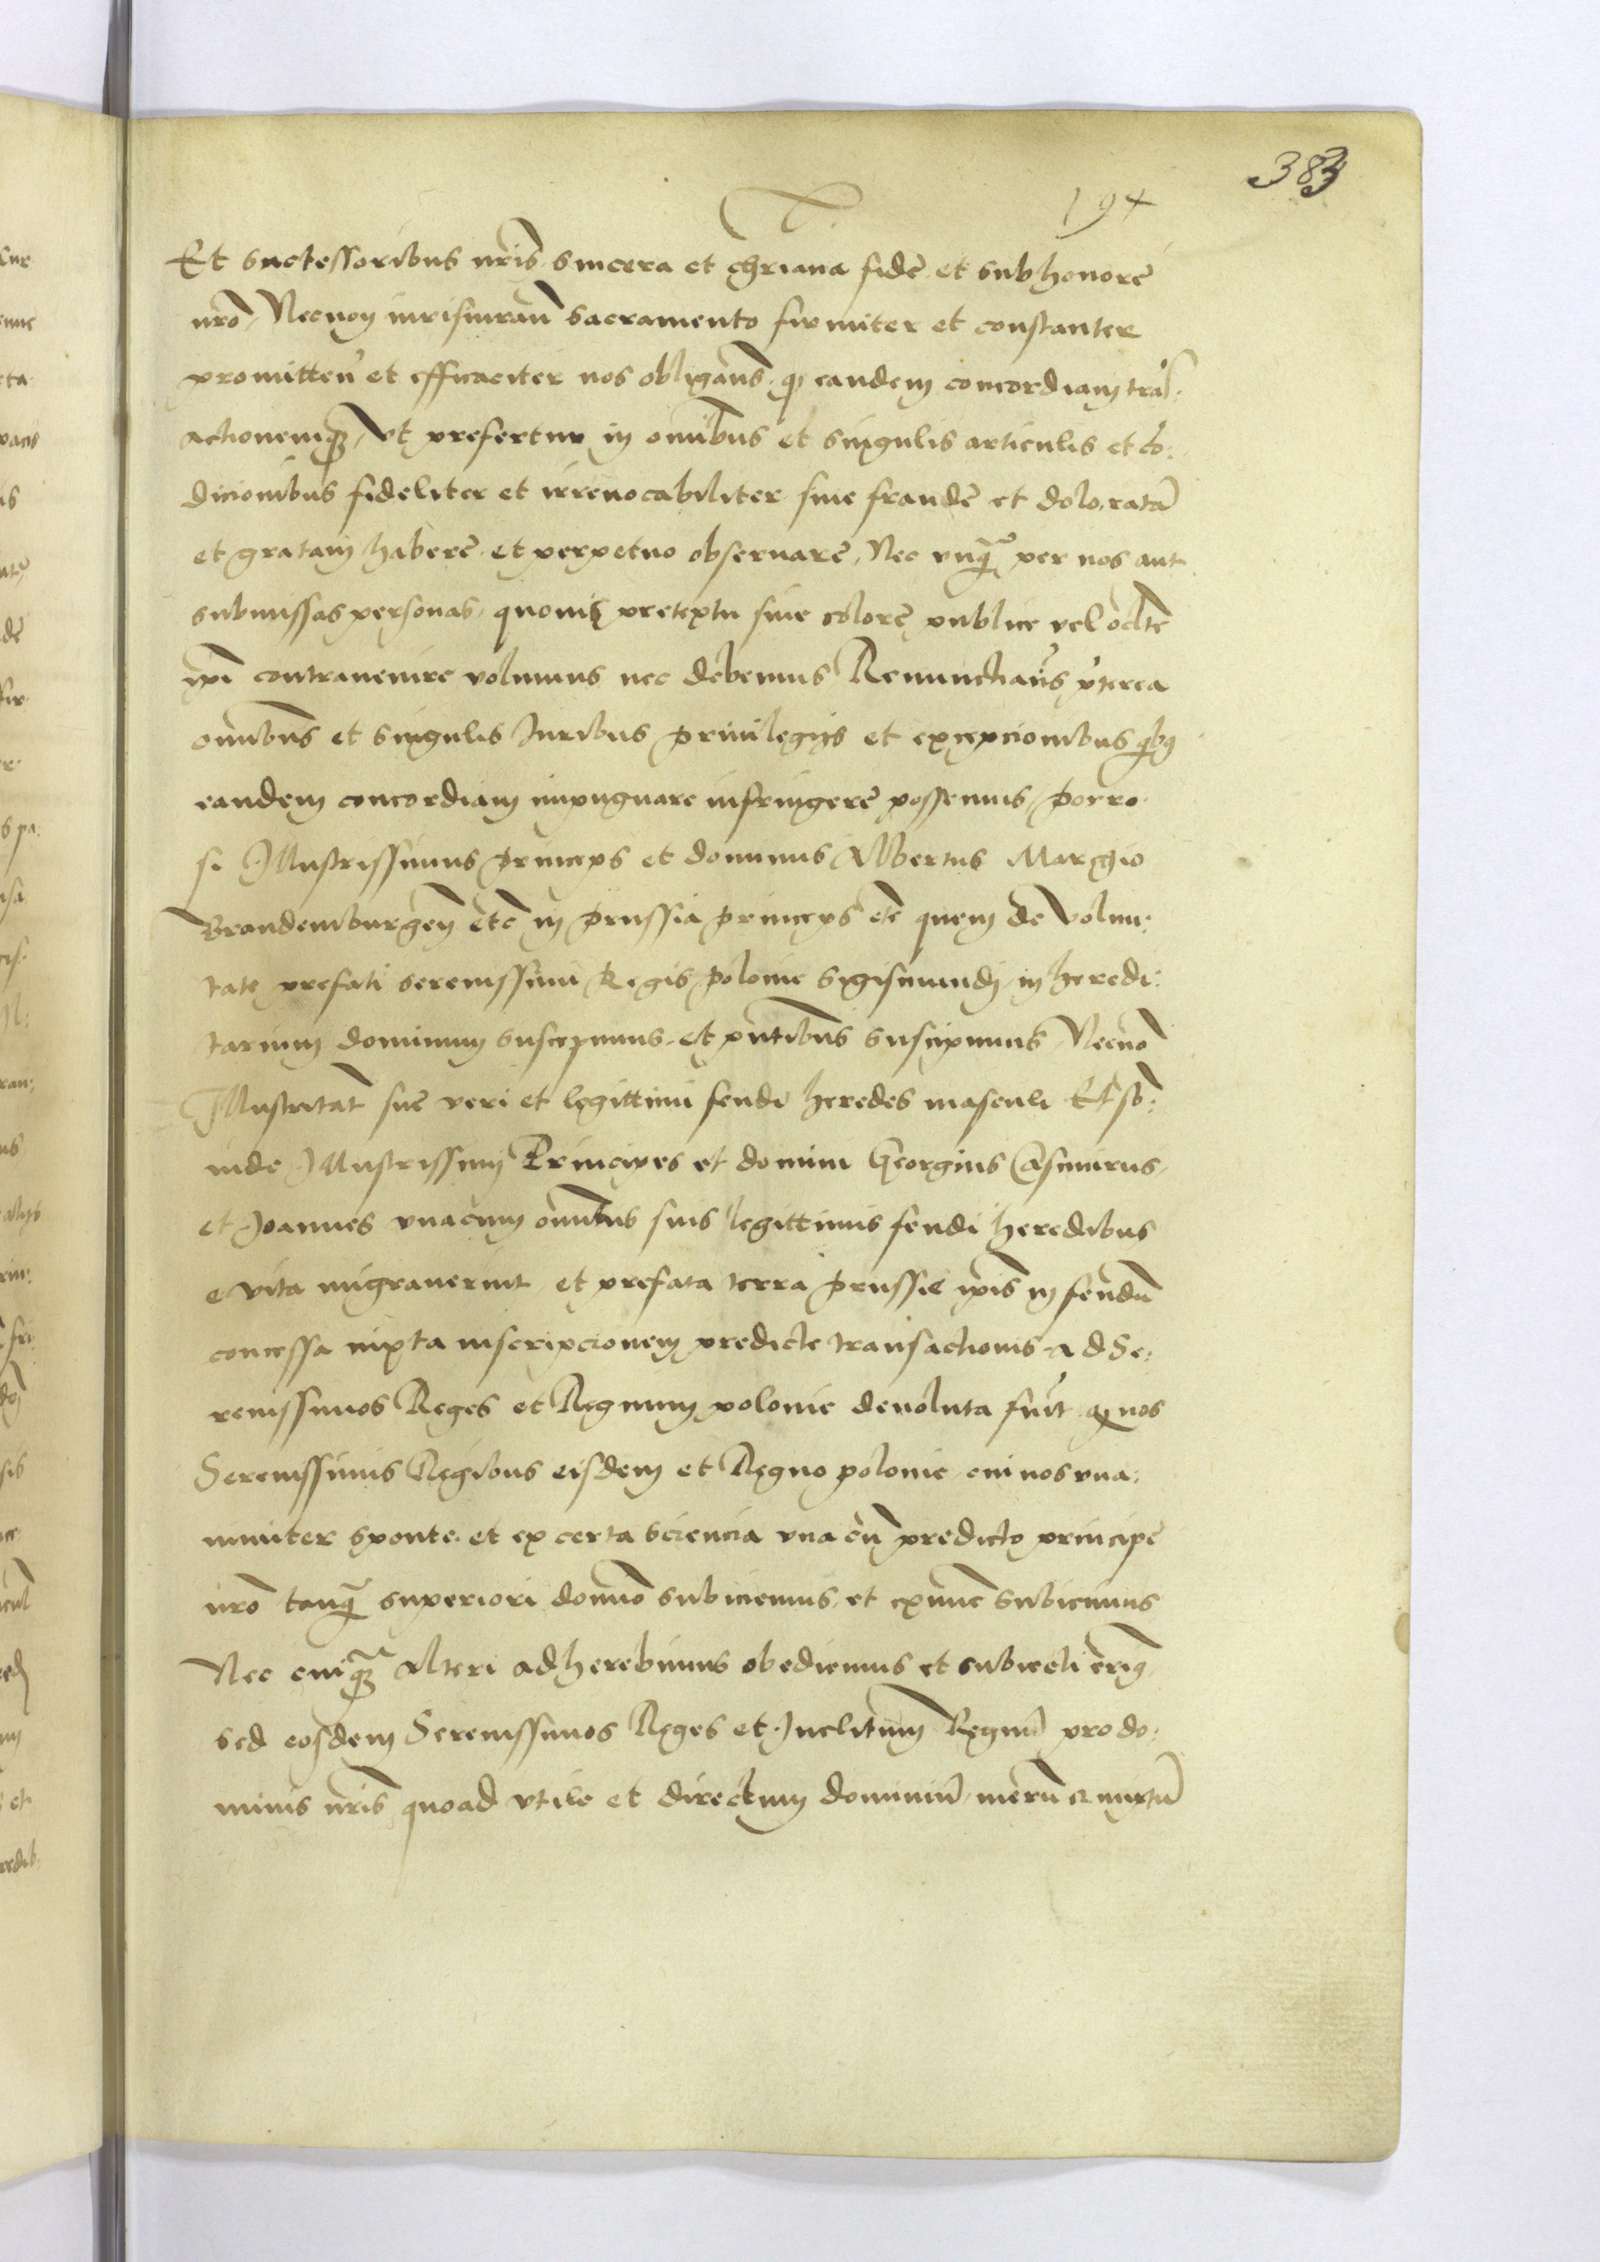 383
194
Et successoribus nr̃is sincera et chr̃iana fide et sub honore
nr̃o Necnon iurisiuran̄ sacramento firmiter et constanter
promitten̄ et efficaciter nos obligan̄s q̃ eandem concordiam trãs:
actionemq̃ Vt prefertur in omībus et singulis articulis et cõ:
dicionibus fideliter et irreuocabiliter sine fraude et dolo ratã
et gratam habere et perpetuo obseruare Nec vnq̃ per nos aut
submissas personas quouis pretextu siue colore publice vel occlte
ip̄i contrauenire volumus nec debemus Renunctian̄s p̃terea
omībus et singulis Iuribus priuilegijs et excepcionibus q̃bq
eandem concordiam impugnare infringere possemus Porro
si Illustrissimus princeps et dominus Albertus Margio
Brandemburgeñ etc̃ in prussia princeps etc̃ quem de Volun:
tate prefati serenissimi Regis polonie Sigismundi in heredi:
tarium dominum suscepimus et pñtibus suscipimus Necnõ
Illustritat̃ sue veri et legittimi feudi heredes masculi Et s̃b:
inde Illustrissimi Principes et domini Georgius Casimirus
et Joannes vnacum omībus suis legittimis feudi heredibus
e vita migrauerint et prefata terra prussie ip̄is in feudũ
concessa iuxta inscripcionem predicte transactionis Ad Se:
renissimos Reges et Regnum polonie deuoluta fuĩt q̃ nos
Serenissimis Regibus eisdem et Regno polonie cui nos vna:
nimiter sponte et ex certa sciencia vna cũ predicto principe
nr̃o tanq̃ superiori domño subiicimus et exnunc subicimus
Nec cuiq̃ alteri adherebimus obediemus et subiecti erim9
sed eosdem Serenissimos Reges et Inclitum Regnũ pro do:
minis nr̃is quoad vtile et directum dominiũ merũ et mixtũ